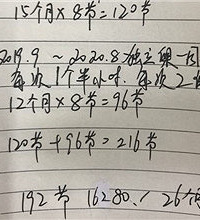 15个月×8节=120节
2019.9 ~ 2020.8 独立 一周
每次1个半小时. 每次2
12个月×8节=96节
120节+96节=216节
192节 16280./ 26个